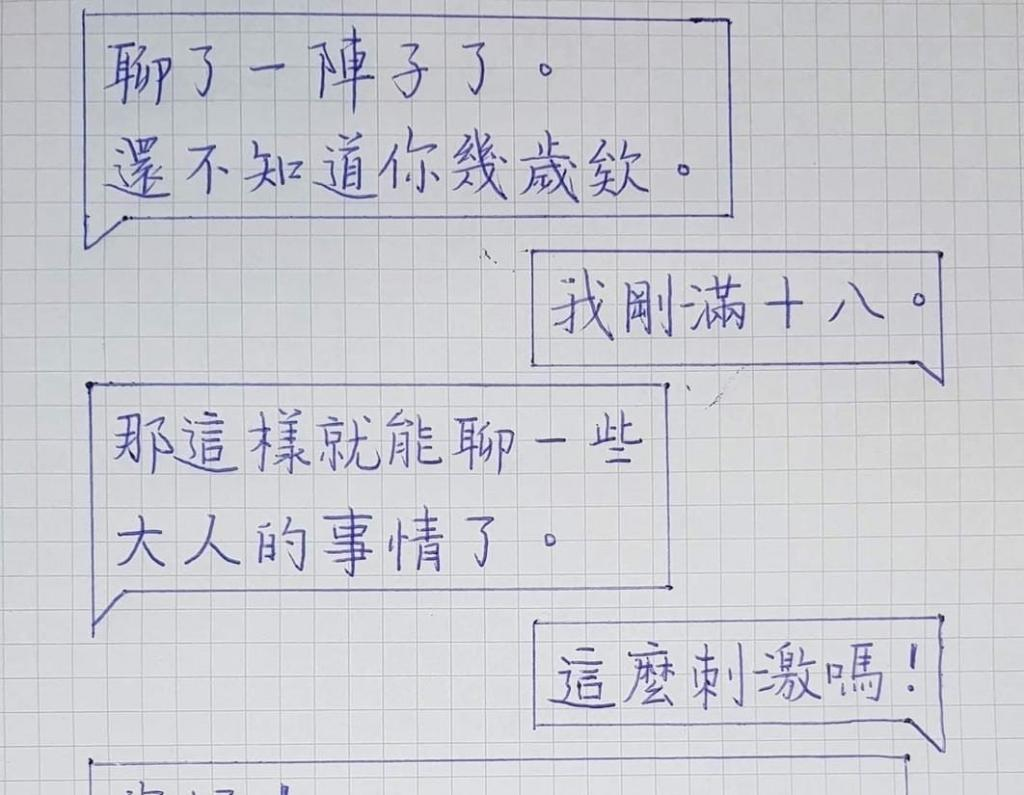 聊了一陣子了。
還不知道你幾歲欸。
我剛滿十八。
那這樣就能聊一些
大人的事情了。
這麼刺激嗎!